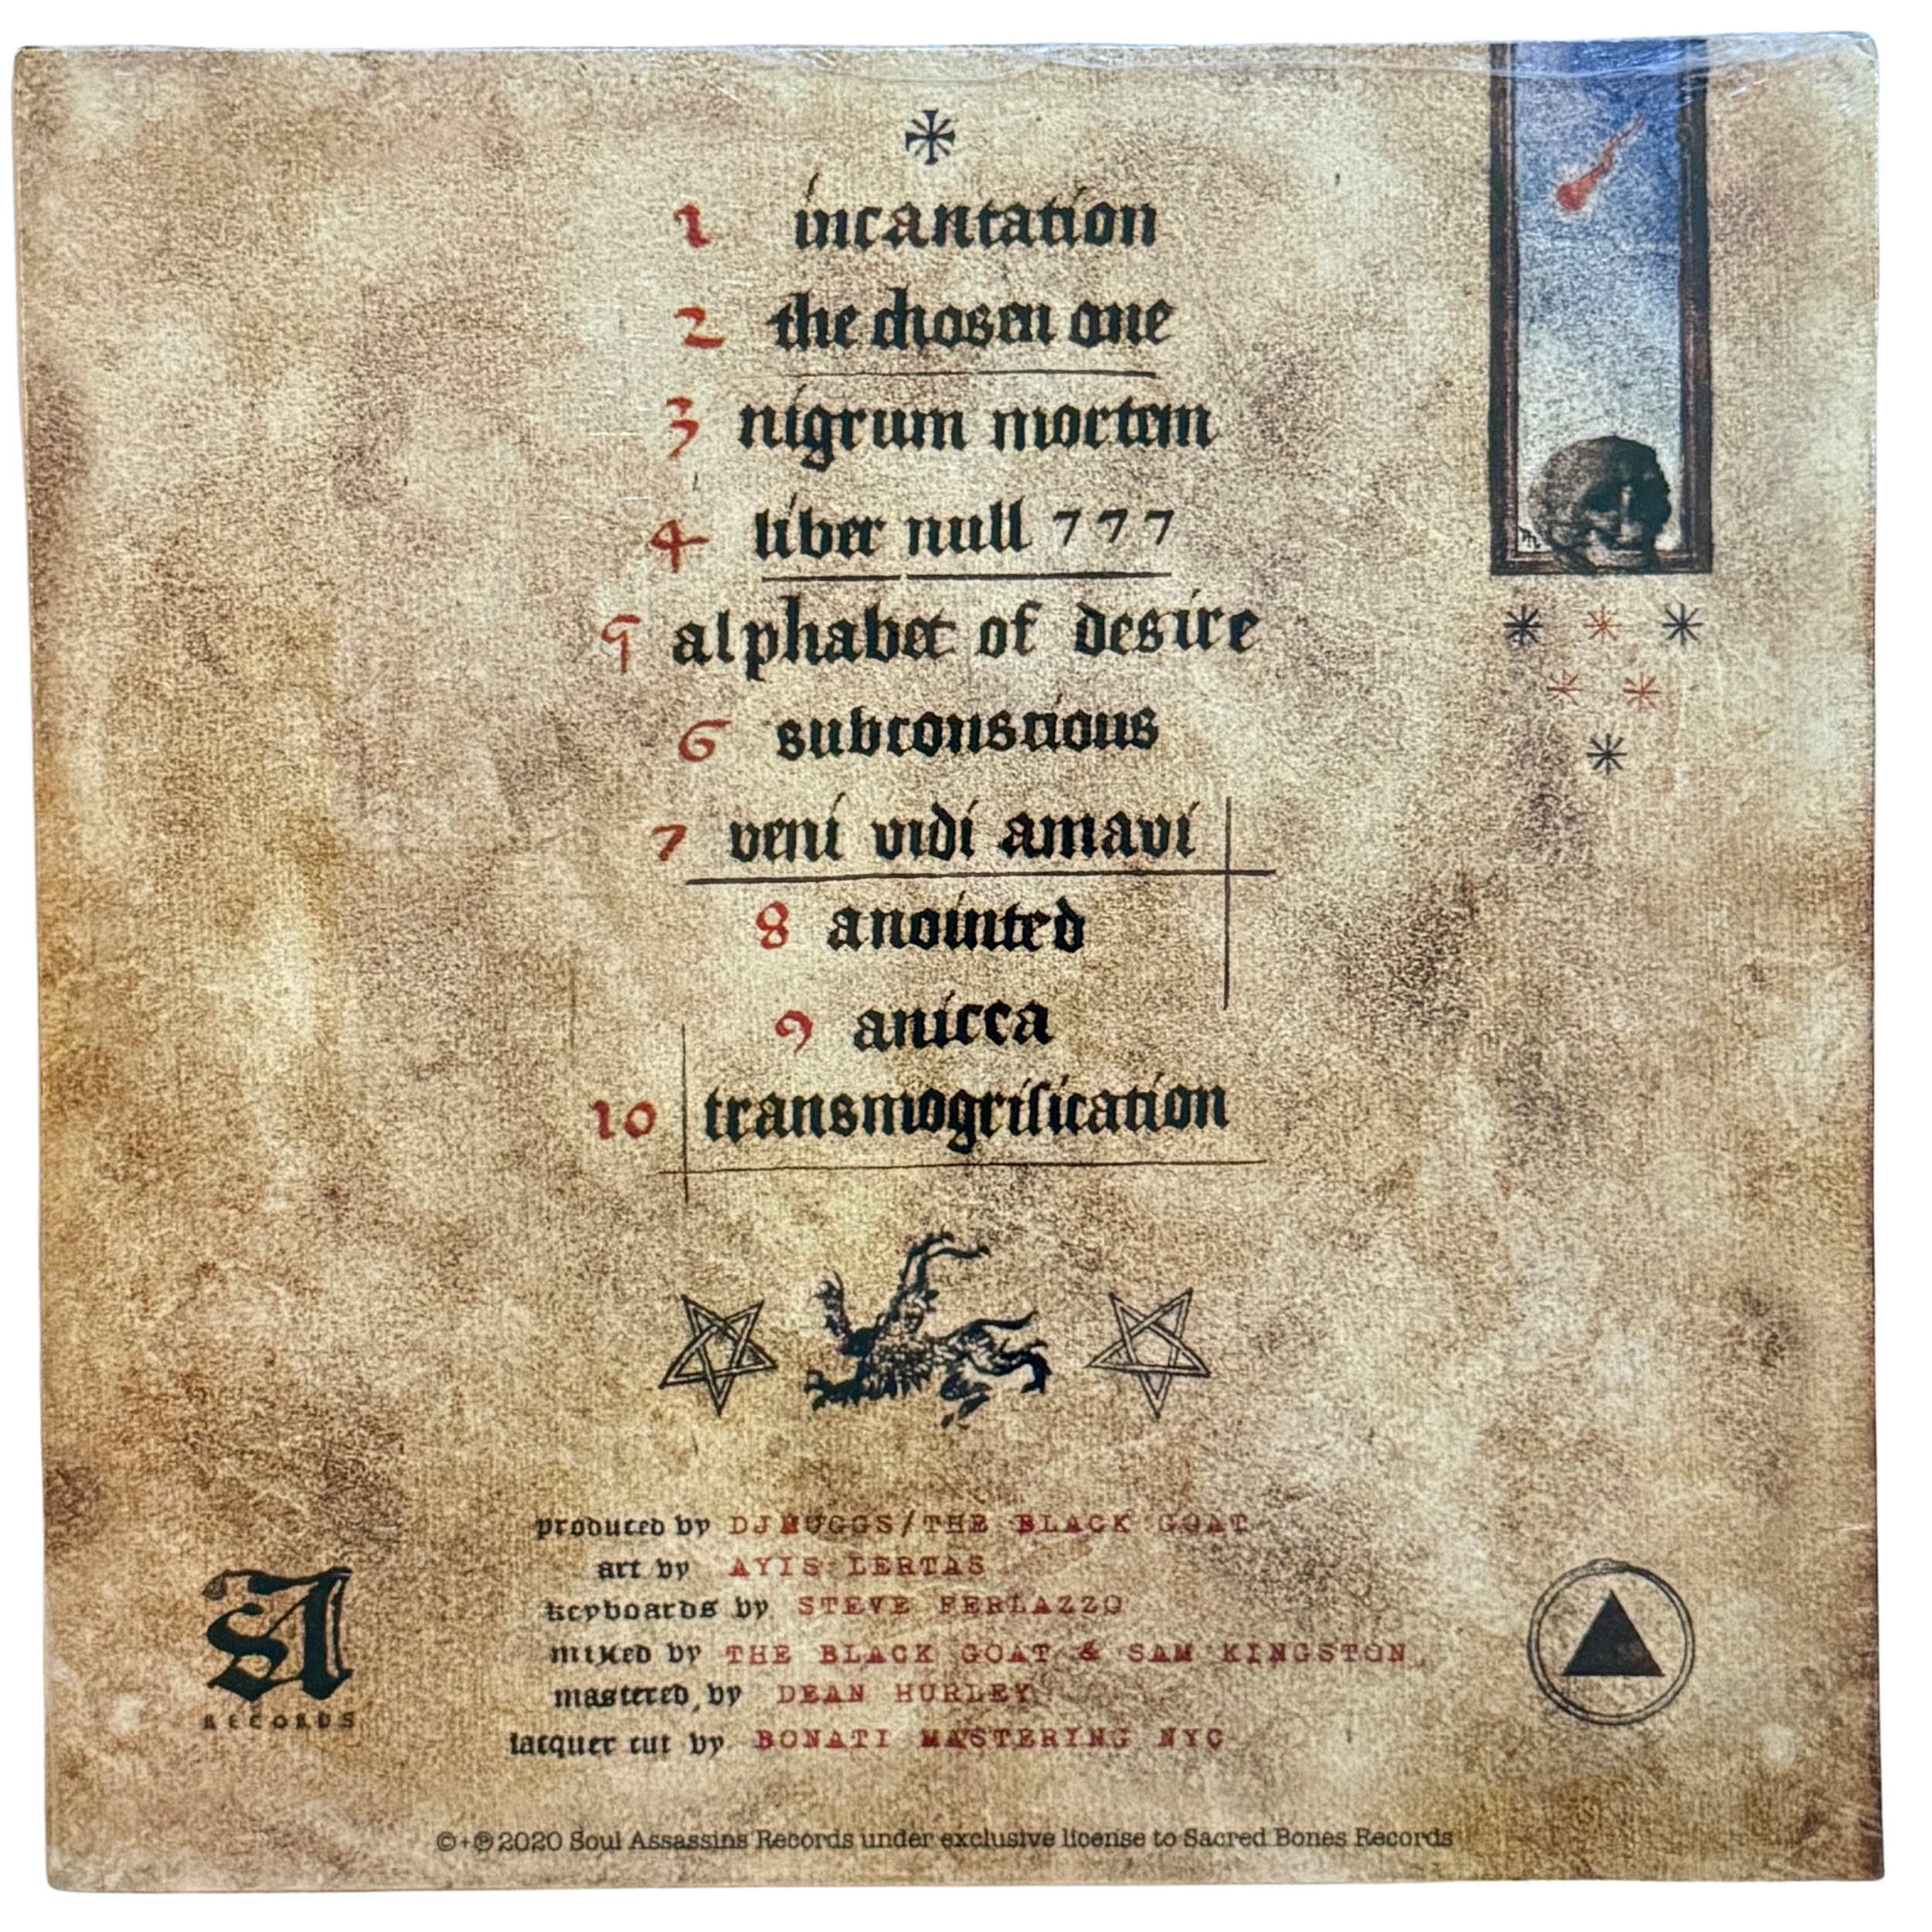 1 incantation
2 the chosen one
3 nigrum mortem
4 liber null 777
5 alphabet of desire
6 subconscious
7 veni vidi amavi
8 anointed
9 anicca
10 transmogrification
produced by DJ MUGGS/THE BLACK GOAT
art by AYIS LERTAS
keyboards by STEVE FERLAZZO
mixed by THE BLACK GOAT & SAM KINGSTON
mastered by DEAN HURLEY
lacquer cut by BONATI MASTERING NYC
SA
RECORDS
©+℗ 2020 Soul Assassins Records under exclusive license to Sacred Bones Records